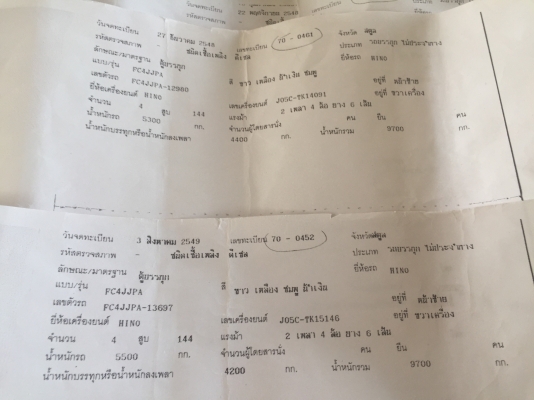 22 พฤศจิกายน 2548
วันจดทะเบียน 27 ธันวาคม 2548 เลขทะเบียน 70 - 0401 จังหวัด สตูล
รหัสตรวจสภาพ - ชนิดเชื้อเพลิง ดีเซล ประเภท รถบรรทุก ไม่ประจำทาง
ลักษณะ/มาตรฐาน ตู้บรรทุก ยี่ห้อรถ HINO
แบบ/รุ่น FC4JJPA สี ขาว เหลือง น้ำเงิน ชมพู
เลขตัวรถ FC4JJPA-12960 อยู่ที่ หน้าซ้าย
ยี่ห้อเครื่องยนต์ HINO เลขเครื่องยนต์ J05C-TK14091 อยู่ที่ ขวาเครื่อง
จำนวน 4 สูบ 144 แรงม้า 2 เพลา 4 ล้อ ยาง 6 เส้น
น้ำหนักรถ 5300 กก. จำนวนผู้โดยสารนั่ง คน ยืน คน
น้ำหนักบรรทุกหรือน้ำหนักลงเพลา 4400 กก. น้ำหนักรวม 9700 กก.
วันจดทะเบียน 3 สิงหาคม 2549 เลขทะเบียน 70 - 0452 จังหวัดสตูล
รหัสตรวจสภาพ - ชนิดเชื้อเพลิง ดีเซล ประเภท รถบรรทุก ไม่ประจำทาง
ลักษณะ/มาตรฐาน ตู้บรรทุก ยี่ห้อรถ HINO
แบบ/รุ่น FC4JJPA สี ขาว เหลือง ชมพู น้ำเงิน
เลขตัวรถ FC4JJPA-13697 อยู่ที่ หน้าซ้าย
ยี่ห้อเครื่องยนต์ HINO เลขเครื่องยนต์ J05C-TK15146 อยู่ที่ ขวาเครื่อง
จำนวน 4 สูบ 144 แรงม้า 2 เพลา 4 ล้อ ยาง 6 เส้น
น้ำหนักรถ 5500 กก. จำนวนผู้โดยสารนั่ง คน ยืน คน
น้ำหนักบรรทุกหรือน้ำหนักลงเพลา 4200 กก. น้ำหนักรวม 9700 กก.